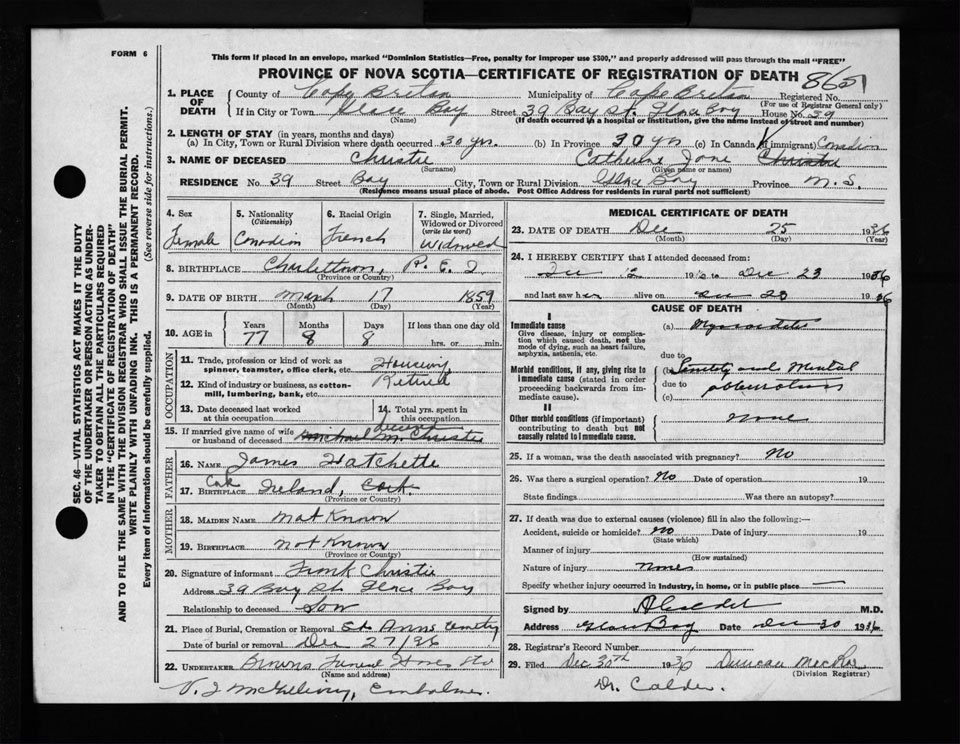 FORM 6
This form if placed in an envelope, marked "Dominion Statistics—Free, penalty for improper use $300," and properly addressed will pass through the mail "FREE"
PROVINCE OF NOVA SCOTIA—CERTIFICATE OF REGISTRATION OF DEATH 8651
1. PLACE OF DEATH County of Cape Breton Municipality of Cape Breton Registered No.
(For use of Registrar General only)
If in City or Town Glace Bay Street 39 Bay St. Glace Bay House No. 39
(Name) (If death occurred in a hospital or institution, give the name instead of street and number)
2. LENGTH OF STAY (in years, months and days)
(a) In City, Town or Rural Division where death occurred 30 yrs. (b) In Province 30 yrs (c) In Canada (if immigrant) Canadian
3. NAME OF DECEASED Christie Catherine Jane Christie
(Surname) (Given name or names)
RESIDENCE No. 39 Street Bay City, Town or Rural Division Glace Bay Province N.S.
(Residence means usual place of abode. Post Office Address for residents in rural parts not sufficient)
4. Sex Female
5. Nationality (Citizenship) Canadian
6. Racial Origin French
7. Single, Married, Widowed or Divorced (write the word) Widowed
8. BIRTHPLACE Charlottetown, P.E.I
(Province or Country)
9. DATE OF BIRTH March 17 1859
(Month) (Day) (Year)
10. AGE in Years 77 Months 8 Days 8 If less than one day old
hrs. or min.
OCCUPATION
11. Trade, profession or kind of work as spinner, teamster, office clerk, etc.
12. Kind of industry or business, as cotton-mill, lumbering, bank, etc. Retired
13. Date deceased last worked at this occupation
14. Total yrs. spent in this occupation
15. If married give name of wife or husband of deceased Michael M. Christie
FATHER
16. NAME James Hatchette
17. BIRTHPLACE Ireland, Cork.
(Province or Country)
MOTHER
18. MAIDEN NAME Not Known
19. BIRTHPLACE Not Known
(Province or Country)
20. Signature of informant Frank Christie
Address 39 Bay St. Glace Bay
Relationship to deceased Son
21. Place of Burial, Cremation or Removal St. Anns Cemetery
Date of burial or removal Dec 27/36
22. UNDERTAKER Browns Funeral Home
(Name and address)
Embalmer.
MEDICAL CERTIFICATE OF DEATH
23. DATE OF DEATH Dec 25 1936
(Month) (Day) (Year)
24. I HEREBY CERTIFY that I attended deceased from:
to Dec 23 1936
and last saw her alive on Dec 23 1936
CAUSE OF DEATH
I
Immediate cause
Give disease, injury or complication which caused death, not the mode of dying, such as heart failure, asphyxia, asthenia, etc.
(a) Myocarditis
due to
Morbid conditions, if any, giving rise to immediate cause (stated in order proceeding backwards from immediate cause).
(b) Senility and Mental
due to
(c)
II
Other morbid conditions (if important) contributing to death but not causally related to immediate cause.
none
25. If a woman, was the death associated with pregnancy? No
26. Was there a surgical operation? No Date of operation 19
State findings Was there an autopsy?
27. If death was due to external causes (violence) fill in also the following:—
Accident, suicide or homicide? No Date of injury 19
(State which)
Manner of injury
(How sustained)
Nature of injury None
Specify whether injury occurred in industry, in home, or in public place —
Signed by M.D.
Address Glace Bay Date Dec 30 1936
28. Registrar's Record Number
29. Filed Dec 30th 1936 Duncan
(Division Registrar)
Dr. Calder.
SEC. 46—VITAL STATISTICS ACT MAKES IT THE DUTY
OF THE UNDERTAKER OR PERSON ACTING AS UNDER-
TAKER TO OBTAIN ALL THE PARTICULARS REQUIRED
IN THE "CERTIFICATE OF REGISTRATION OF DEATH"
AND TO FILE THE SAME WITH THE DIVISION REGISTRAR WHO SHALL ISSUE THE BURIAL PERMIT.
WRITE PLAINLY WITH UNFADING INK. THIS IS A PERMANENT RECORD.
Every item of information should be carefully supplied. (See reverse side for instructions.)